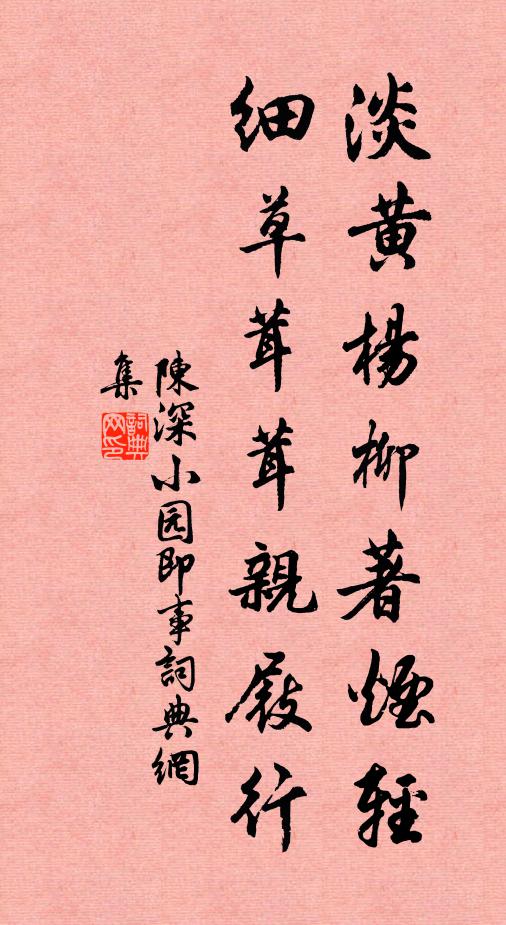 淡黄楊柳著煙輕
細草茸茸親屐行
陳深小园即事詞典網
集
詞典网印